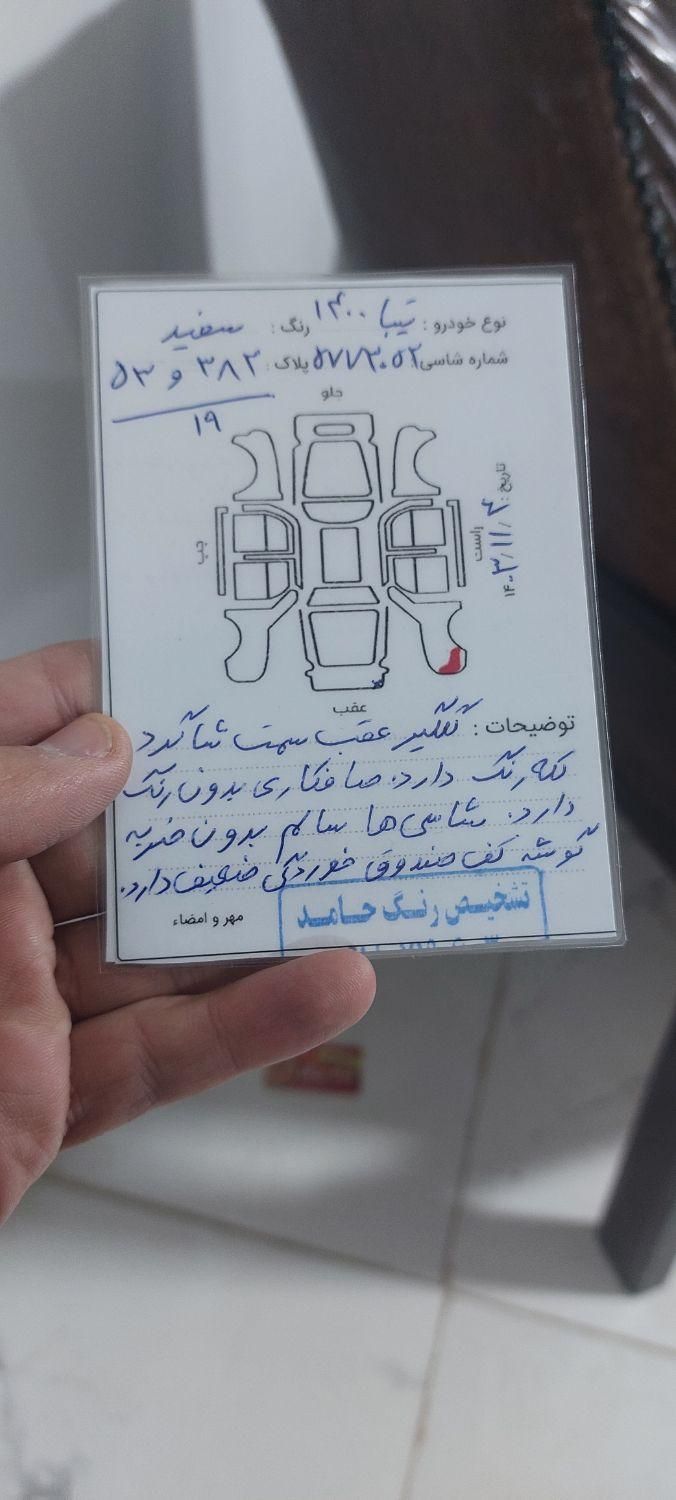 نوع خودرو : تیبا ۱۴۰۰ رنگ : سفید
شماره شاسی ۵۷۷۳۰۵۲ پلاک : ۳۸۲ و ۵۳
۱۹
جلو
تاریخ : ۱۴۰۳/۱۱/۴
راست
چپ
عقب
توضیحات : گلگیر عقب سمت شاگرد
لکه رنگ دارد. صافکاری بدون رنگ
دارد. شاسی‌ها سالم بدون ضربه
گوشه کف صندوق خوردگی ضعیف دارد.
مهر و امضاء
تشخیص رنگ حامد